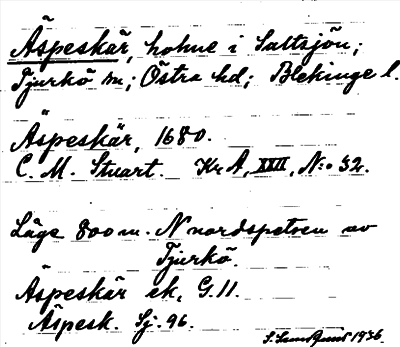 Äspeskär, holme i Saltsjön;
Tjurkö sn; Östra hd; Blekinge l.
Äspeskär, 1680.
C. M. Stuart. Kr A, XXII, N:o 32.
Läge 800 m. N nordspetsen av
Tjurkö.
Äspeskär ek, G. 11.
Äspesk. Sj. 96.
1936